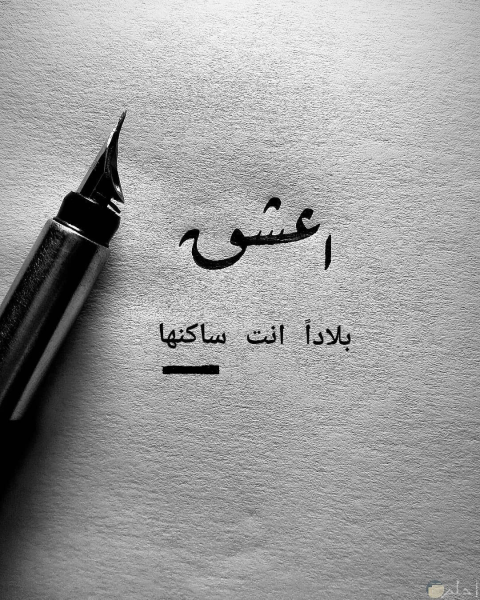 اعشق
بلاداً انت ساكنها